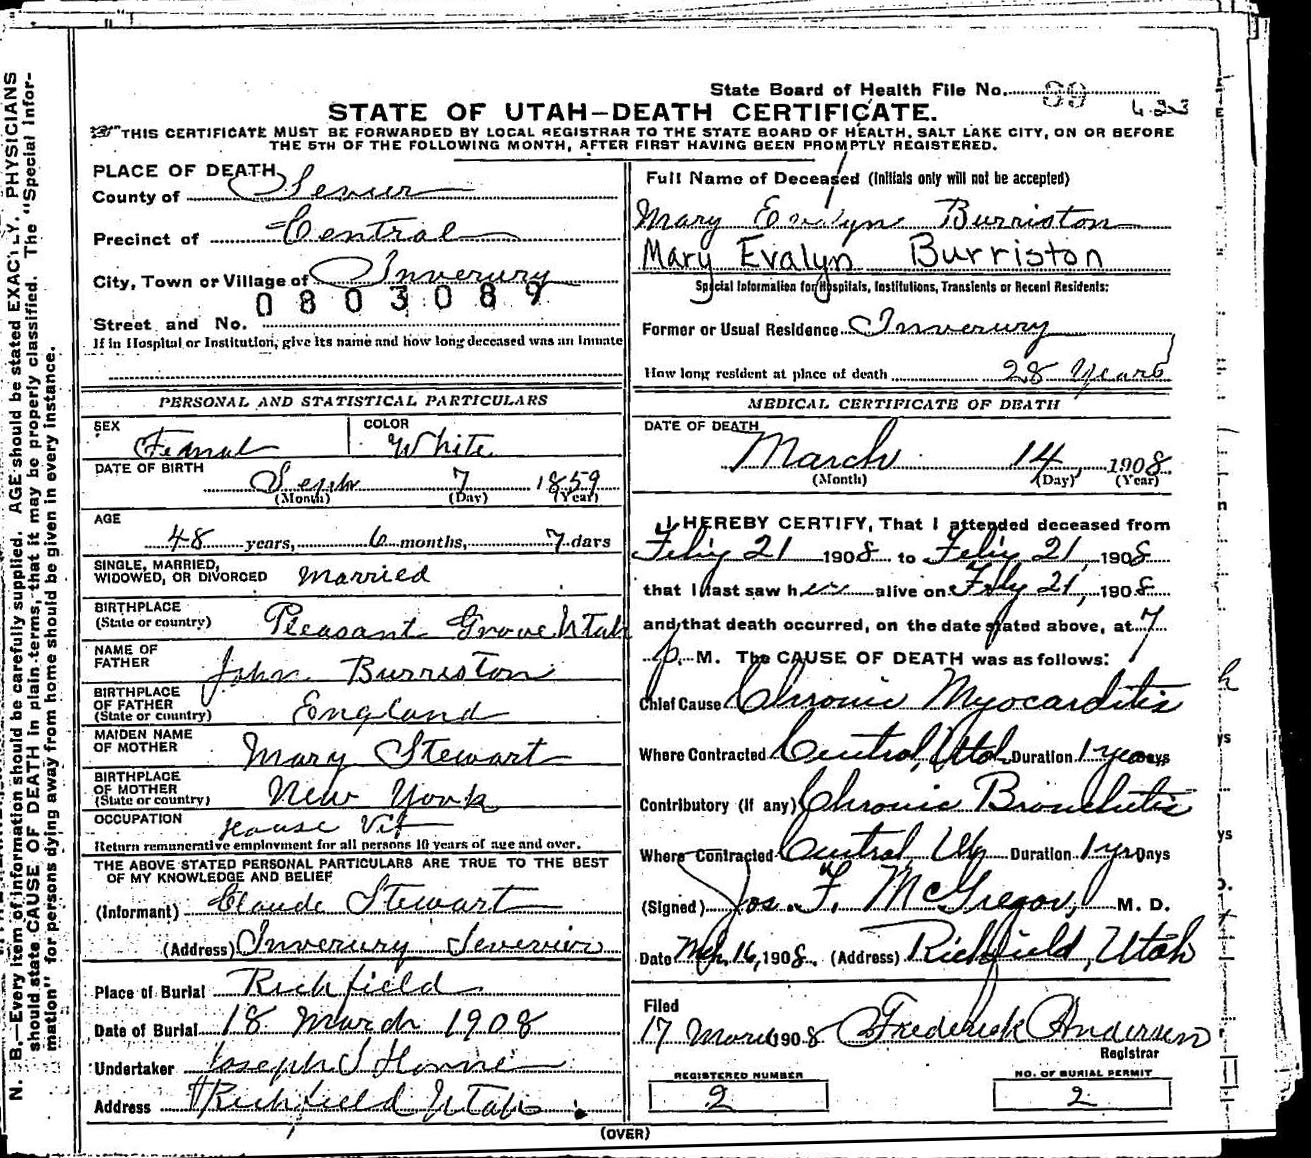 State Board of Health File No. 99
4-23
STATE OF UTAH—DEATH CERTIFICATE.
THIS CERTIFICATE MUST BE FORWARDED BY LOCAL REGISTRAR TO THE STATE BOARD OF HEALTH, SALT LAKE CITY, ON OR BEFORE
THE 5TH OF THE FOLLOWING MONTH, AFTER FIRST HAVING BEEN PROMPTLY REGISTERED.
PLACE OF DEATH
County of Sevier
Precinct of Central
City, Town or Village of Inverury
0803089
Street and No.
If in Hospital or Institution, give its name and how long deceased was an Inmate
Full Name of Deceased (Initials only will not be accepted)
Mary Evalyn Burriston
Mary Evalyn Burriston
Special Information for Hospitals, Institutions, Transients or Recent Residents:
Former or Usual Residence Inverury
How long resident at place of death 28 Years
PERSONAL AND STATISTICAL PARTICULARS
SEX Femal COLOR White
DATE OF BIRTH
Septr 7 1859
(Month) (Day) (Year)
AGE
48 years, 6 months, 7 days
SINGLE, MARRIED,
WIDOWED, OR DIVORCED Married
BIRTHPLACE
(State or country) Pleasant Grove Utah
NAME OF
FATHER John Burriston
BIRTHPLACE
OF FATHER
(State or country) England
MAIDEN NAME
OF MOTHER Mary Stewart
BIRTHPLACE
OF MOTHER
(State or country) New York
OCCUPATION House
Return remunerative employment for all persons 10 years of age and over.
THE ABOVE STATED PERSONAL PARTICULARS ARE TRUE TO THE BEST
OF MY KNOWLEDGE AND BELIEF
(Informant) Claude Stewart
(Address) Inverury Sevevier
Place of Burial Richfield
Date of Burial 18 March 1908
Undertaker Joseph S Horne
Address Richfield Utah
MEDICAL CERTIFICATE OF DEATH
DATE OF DEATH
March 14, 1908
(Month) (Day) (Year)
I HEREBY CERTIFY, That I attended deceased from
Feby 21 1908 to Feby 21, 1908
that I last saw her alive on Feby 21, 1908
and that death occurred, on the date stated above, at 7
p. M. The CAUSE OF DEATH was as follows:
Chief Cause Chronic Myocarditis
Where Contracted Central, Utah Duration 1 year Days
Contributory (if any) Chronic Bronchitis
Where Contracted Central Ut Duration 1 yr Days
(Signed) Jos. F. McGregor, M. D.
Date Mch 16, 1908. (Address) Richfield, Utah
Filed
17 March 1908 Frederick Andersen
Registrar
REGISTERED NUMBER
2
NO. OF BURIAL PERMIT
2
(OVER)
N. B.—Every item of information should be carefully supplied. AGE should be stated EXACTLY. PHYSICIANS
should state CAUSE OF DEATH in plain terms, that it may be properly classified. The "Special Infor-
mation" for persons dying away from home should be given in every instance.